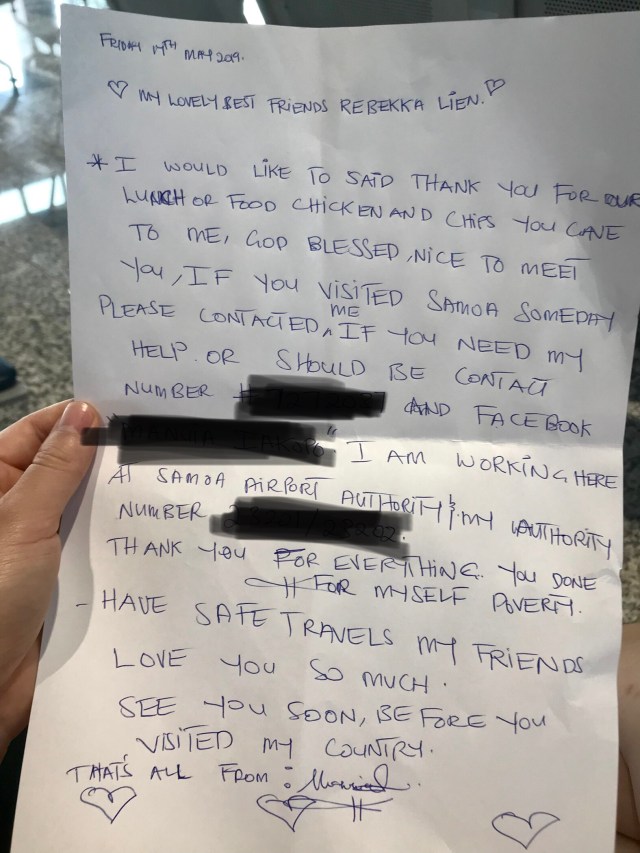 FRIDAY 17TH MAY 2019.
MY LOVELY BEST FRIENDS REBEKKA LIEN.
* I WOULD LIKE TO SAID THANK YOU FOR OUR
LUNCH OR FOOD CHICKEN AND CHIPS YOU GAVE
TO ME, GOD BLESSED, NICE TO MEET
YOU, IF YOU VISITED SAMOA SOMEDAY
PLEASE CONTACTED ME IF YOU NEED MY
HELP. OR SHOULD BE CONTACT
NUMBER AND FACEBOOK
" " I AM WORKING HERE
AT SAMOA AIRPORT AUTHORITY & MY AUTHORITY
NUMBER
THANK YOU FOR EVERYTHING. YOU DONE
FOR MYSELF POVERTY.
- HAVE SAFE TRAVELS MY FRIENDS
LOVE YOU SO MUCH.
SEE YOU SOON, BEFORE YOU
VISITED MY COUNTRY.
THAT'S ALL FROM: